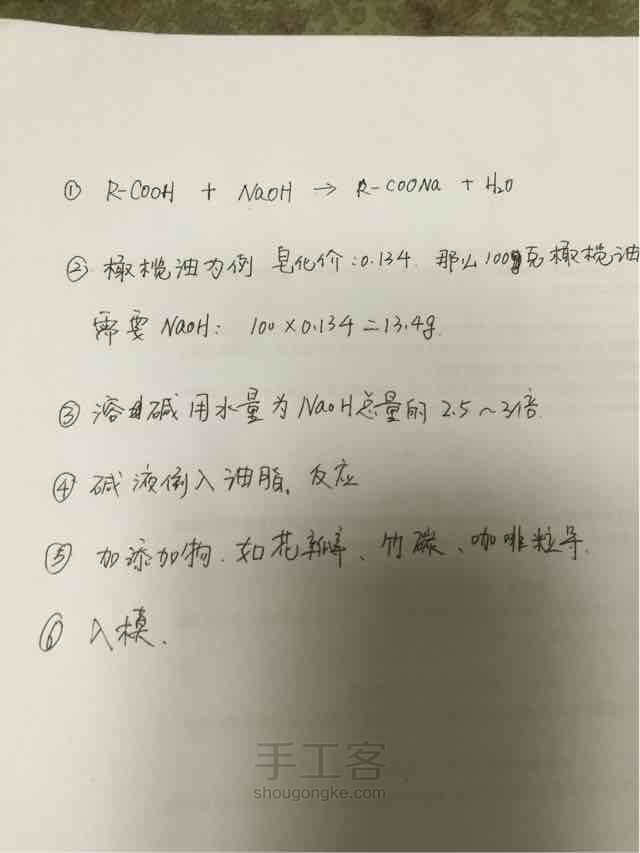 ① R-COOH + NaOH → R-COONa + H₂O
② 橄榄油为例 皂化价:0.134. 那么100g克橄榄油
需要NaOH: 100×0.134=13.4g.
③ 溶碱用水量为NaOH总量的2.5~3倍.
④ 碱液倒入油脂,反应
⑤ 加添加物.如花瓣、竹碳、咖啡粒等.
⑥ 入模.
手工客
shougongke.com